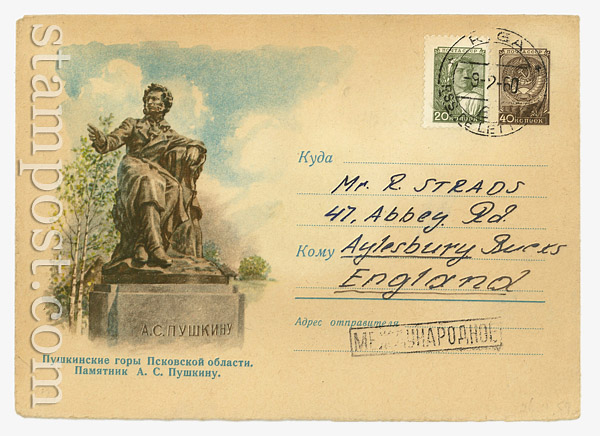 stampost.com
ПОЧТА СССР
20 КОПЕЕК
40 КОПЕЕК
RIGA
-9-2-60
Куда
Mr. R. STRADS
47, Abbey Rd.
Кому Aylesbury Bucks
England
Адрес отправителя
МЕЖДУНАРОДНОЕ
А.С.ПУШКИНУ
Пушкинские горы Псковской области.
Памятник А. С. Пушкину.